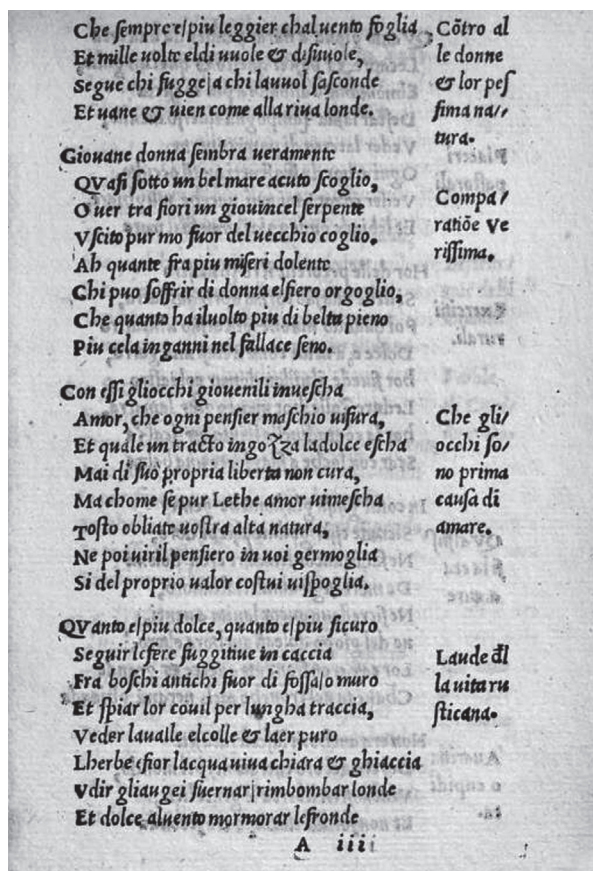 Che sempre e/piu leggier chal uento foglia
Et mille uolte eldi uuole & disuuole,
Segue chi fugge/a chi lauuol sasconde
Et uane & uien come alla riua londe.
Giouane donna sembra ueramente
QVasi sotto un bel mare acuto scoglio,
Ouer tra fiori un giouincel serpente
Vscito pur mo fuor del uecchio coglio.
Ah quante fra piu miseri dolente
Chi puo soffrir di donna elfiero orgoglio,
Che quanto ha iluolto piu di belta pieno
Piu cela inganni nel fallace seno.
Con essi gliocchi giouenili inuescha
Amor, che ogni pensier maschio uisura,
Et quale un tracto ingozza ladolce escha
Mai di suo propria liberta non cura,
Ma chome se pur Lethe amor uimescha
Tosto obliate uostra alta natura,
Ne poi uiril pensiero in uoi germoglia
Si del proprio ualor costui uispoglia.
QVanto e/piu dolce, quanto e/piu sicuro
Seguir le fere fuggitiue in caccia
Fra boschi antichi fuor di fossa/o muro
Et spiar lor couil per lungha traccia,
Veder laualle elcolle & laer puro
Lherbe efior lacqua uiua chiara & ghiaccia
Vdir gliaugei suernar/rimbombar londe
Et dolce aluento mormorar lefronde
A iiii
Cõtro al
le donne
& lor pes
sima na//
tura.
Compa/
ratiõe Ve
rissima.
Che gli/
occhi so/
no prima
causa di
amare.
Laude d̃l
la uita ru
sticana.